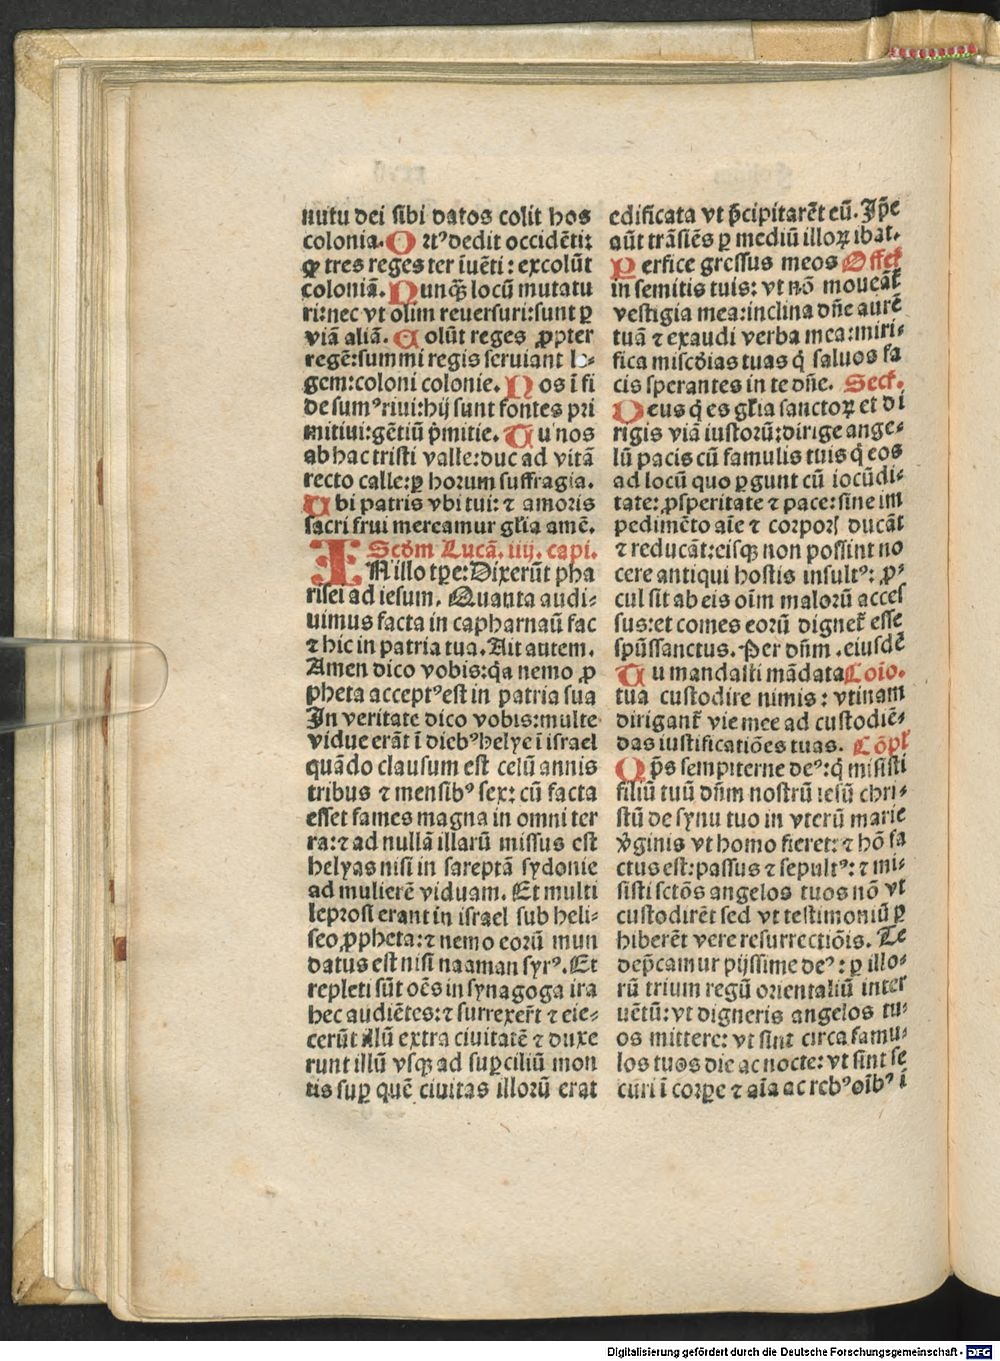 nutu dei sibi datos colit hos
colonia. Ortꝰ dedit occidēti:
qꝫ tres reges ter iuēti: excolūt
coloniā. Nunqꝫ locū mutatu
ri: nec vt olim reuersuri: sunt ꝑ
viā aliā. Colūt reges ꝓpter
regē: summi regis seruiant le-
gem: coloni colonie. Nos ī fi
de sumꝰ riui: hij sunt fontes pri
mitiui: gētiū p̄mitie. Tu nos
ab hac tristi valle: duc ad vitā
recto calle: ꝑ horum suffragia.
Ubi patris vbi tui: ⁊ amoris
sacri frui mereamur gl̄ia amē.
Scd̄m Lucā. iiij. capi.
IN illo tꝑe: Dixerūt pha
risei ad iesum. Quanta audi-
uimus facta in capharnaū fac
⁊ hic in patria tua. Ait autem.
Amen dico vobis: qa nemo ꝓ
pheta acceptꝰ est in patria sua
In veritate dico vobis: multe
vidue erāt ī diebꝰ helye ī israel
quādo clausum est celū annis
tribus ⁊ mensibꝰ sex: cū facta
esset fames magna in omni ter
ra: ⁊ ad nullā illarū missus est
helyas nisi in sareptā sydonie
ad mulierē viduam. Et multi
leprosi erant in israel sub heli-
seo ꝓpheta: ⁊ nemo eorū mun
datus est nisi naaman syrꝰ. Et
repleti sūt oēs in synagoga ira
hec audiētes: ⁊ surrexer̄t ⁊ eie-
cerūt illū extra ciuitatē ⁊ duxe
runt illū vsqꝫ ad suꝑciliū mon
tis suꝑ quē ciuitas illorū erat
edificata vt p̄cipitarēt eū. Ip̄e
aūt trāsiēs ꝑ mediū illoꝝ ibat.
Perfice gressus meos Offer̄
in semitis tuis: vt nō moueāt̄
vestigia mea: inclina dn̄e aurē
tuā ⁊ exaudi verba mea: miri-
fica misc̄dias tuas q̄ saluos fa
cis sperantes in te dn̄e. Secr̄.
Deus q̄ es gl̄ia sanctoꝝ et di
rigis viā iustorū: dirige ange-
lū pacis cū famulis tuis q̄ eos
ad locū quo ꝑgunt cū iocūdi-
tate: ꝓsperitate ⁊ pace: sine im
pedimēto aīe ⁊ corporꝭ ducāt
⁊ reducāt: eisqꝫ non possint no
cere antiqui hostis insultꝰ: ꝓ-
cul sit ab eis oīm malorū acces
sus: et comes eorū dignet̄ esse
spūssanctus. Per dn̄m. eiusdē
Tu mandasti mādata Cōio.
tua custodire nimis: vtinam
dirigant̄ vie mee ad custodiē-
das iustificatiōes tuas. Cōpl̄
Op̄s sempiterne deꝰ: q̄ misisti
filiū tuū dn̄m nostrū iesū chri-
stū de synu tuo in vterū marie
v̄ginis vt homo fieret: ⁊ hō fa
ctus est: passus ⁊ sepultꝰ: ⁊ mi-
sisti sctōs angelos tuos nō vt
custodirēt sed vt testimoniū ꝑ
hiberēt vere resurrectiōis. Te
dep̄camur pijssime deꝰ: ꝑ illo-
rū trium regū orientaliū inter
uētū: vt digneris angelos tu-
os mittere: vt sint circa famu-
los tuos die ac nocte: vt sint se
curi ī corꝑe ⁊ aīa ac rebꝰ oībꝰ ī
Digitalisierung gefördert durch die Deutsche Forschungsgemeinschaft - DFG